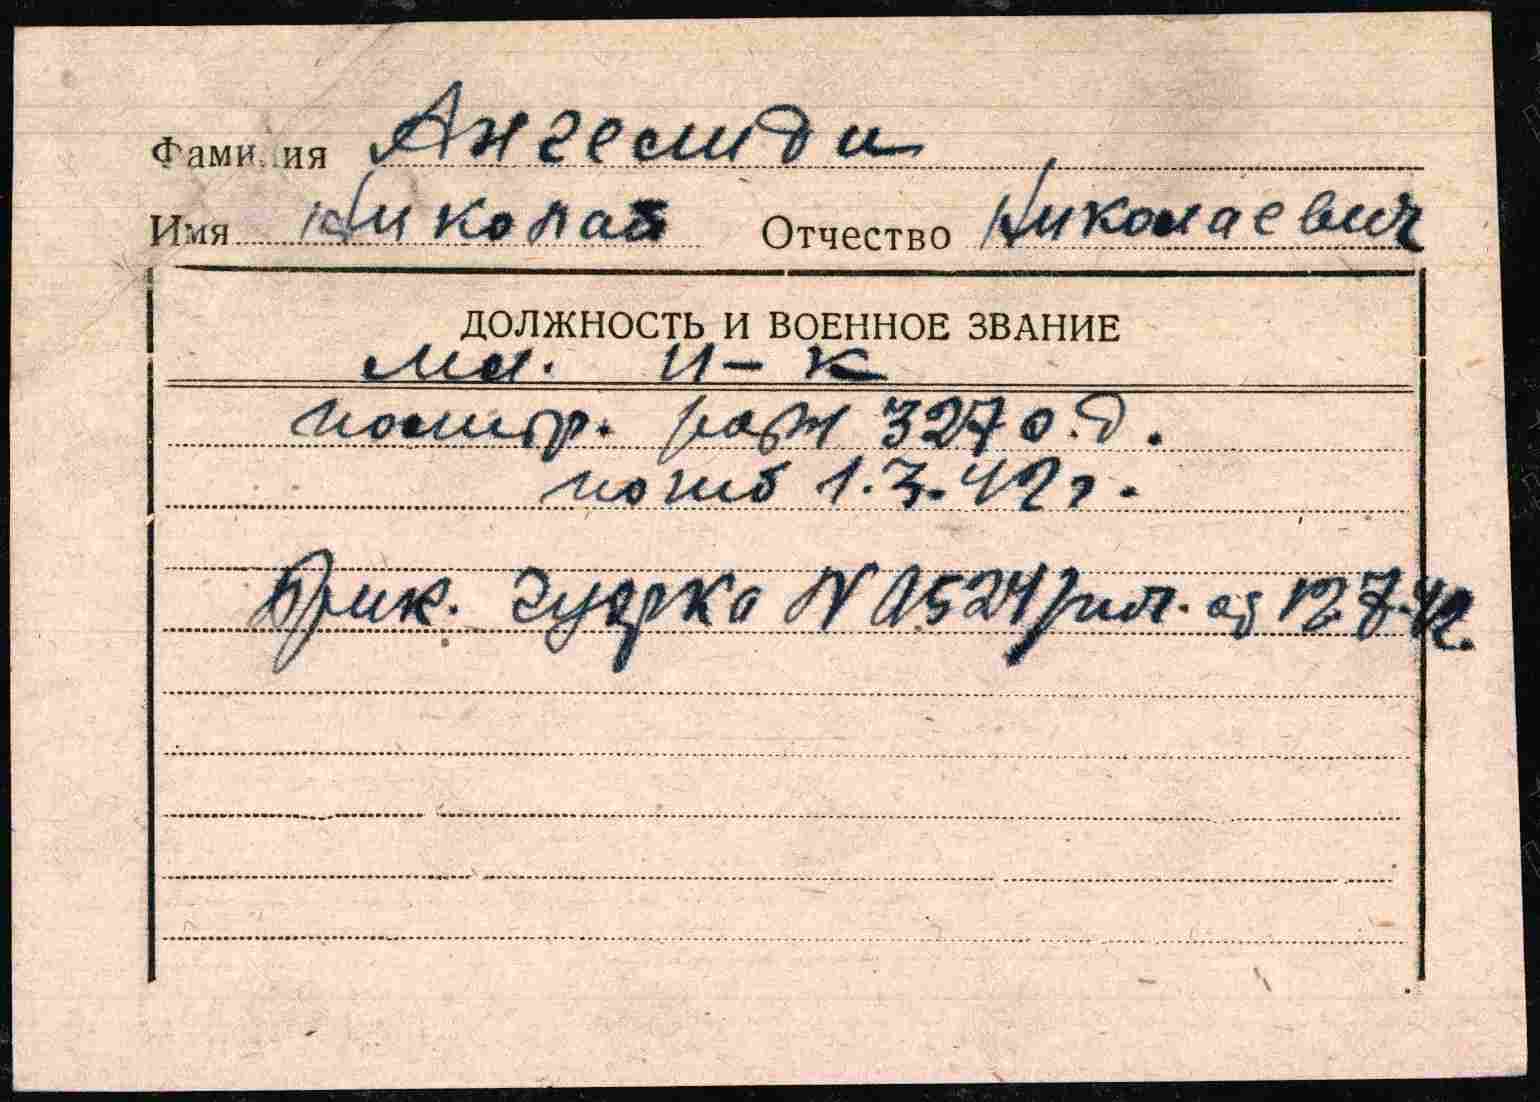 Фамилия Ангелиди
Имя Николай Отчество Николаевич
ДОЛЖНОСТЬ И ВОЕННОЕ ЗВАНИЕ
мл. п-к
политр. 327 о.д.
погиб 1.3.42 г.
Прик. № 0524 от 12.7.42.